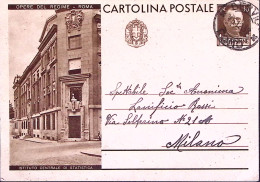 OPERE DEL REGIME - ROMA
CARTOLINA POSTALE
Spettabile Soc. Anonima
Lanificio Rossi
Via Solferino N. 21
Milano
ISTITUTO CENTRALE DI STATISTICA